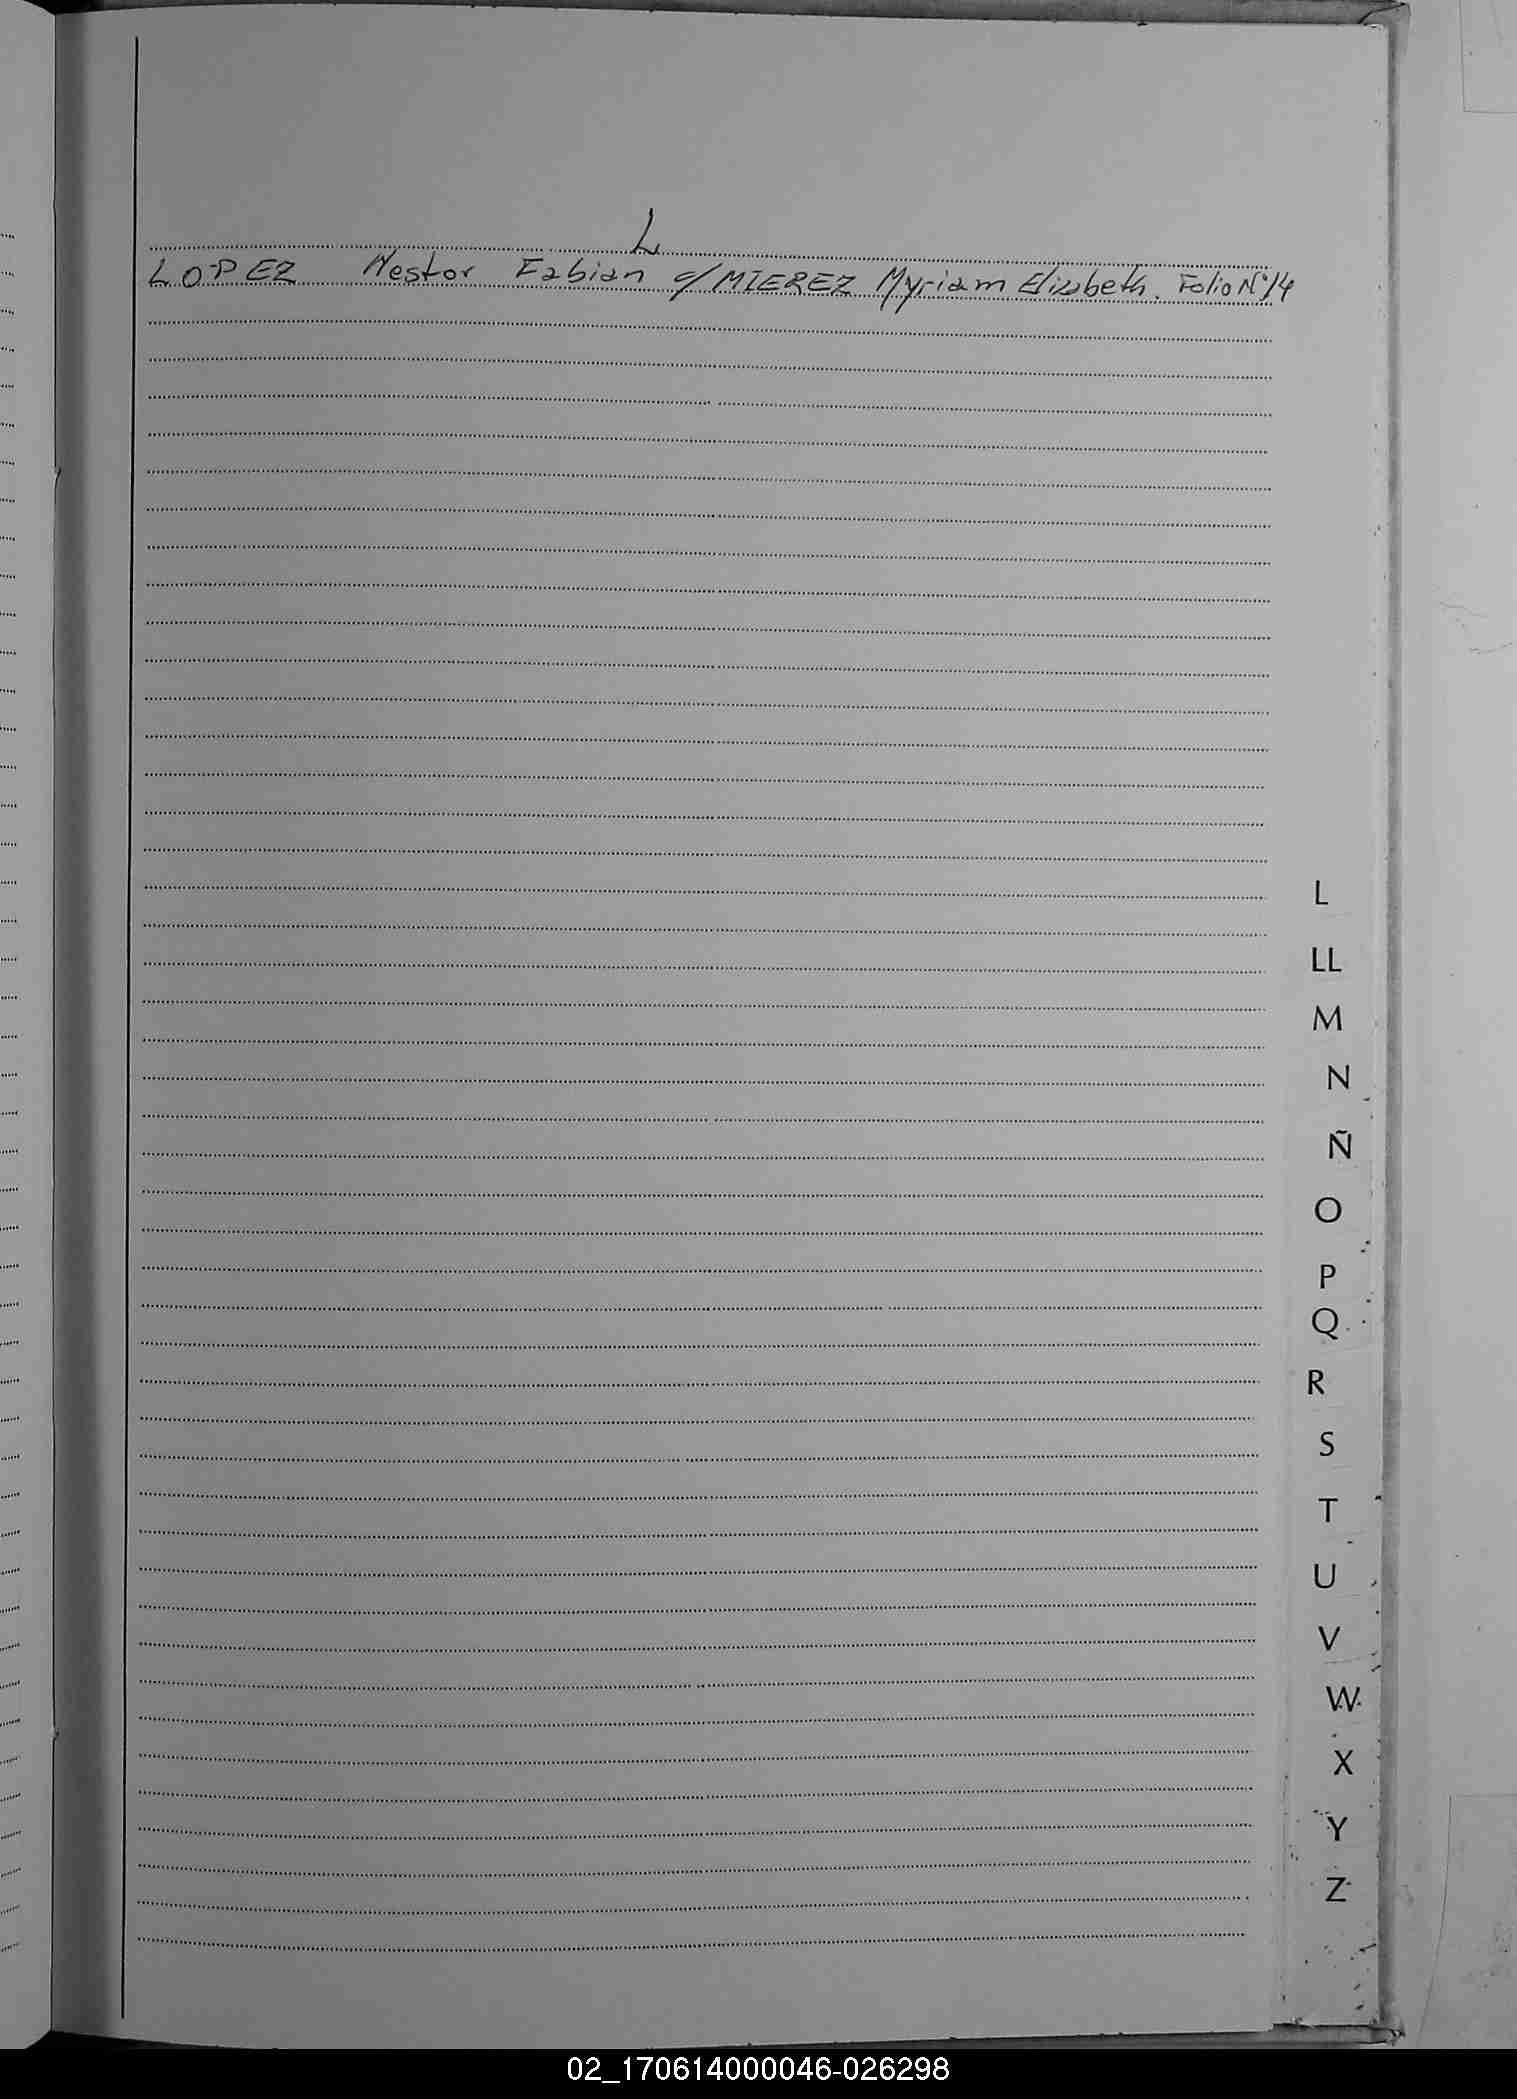 L
LOPEZ Nestor Fabian c/ MIEREZ Myriam Elizabeth. Folio Nº 14
L
LL
M
N
Ñ
O
P
Q
R
S
T
U
V
W
X
Y
Z
02_170614000046-026298